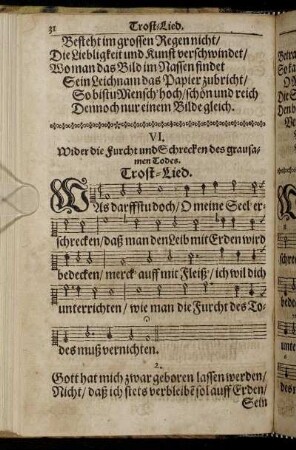 31 Trost-Lied.
Besteht im grossen Regen nicht/
Die Liebligkeit und Kunst verschwindet/
Wo man das Bild im Nassen findet
Sein Leichnam das Papier zubricht/
So bistu Mensch hoch/ schön und reich
Dennoch nur einem Bilde gleich.
VI.
Wider die Furcht und Schrecken des grausa-
men Todes.
Trost-Lied.
WAs darffstu doch/ O meine Seel er-
schrecken/ daß man den Leib mit Erden wird
bedecken/ merck auff mit Fleiß/ ich wil dich
unterrichten/ wie man die Furcht des To-
des muß vernichten.
2.
Gott hat mich zwar geboren lassen werden/
Nicht/ daß ich stets verbleibẽ sol auff Erden/
Sein